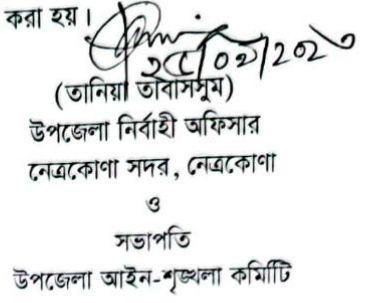 করা হয়।
২৫/০২/২০২৩
(তানিয়া তাবাসসুম)
উপজেলা নির্বাহী অফিসার
নেত্রকোণা সদর, নেত্রকোণা
ও
সভাপতি
উপজেলা আইন-শৃঙ্খলা কমিটি